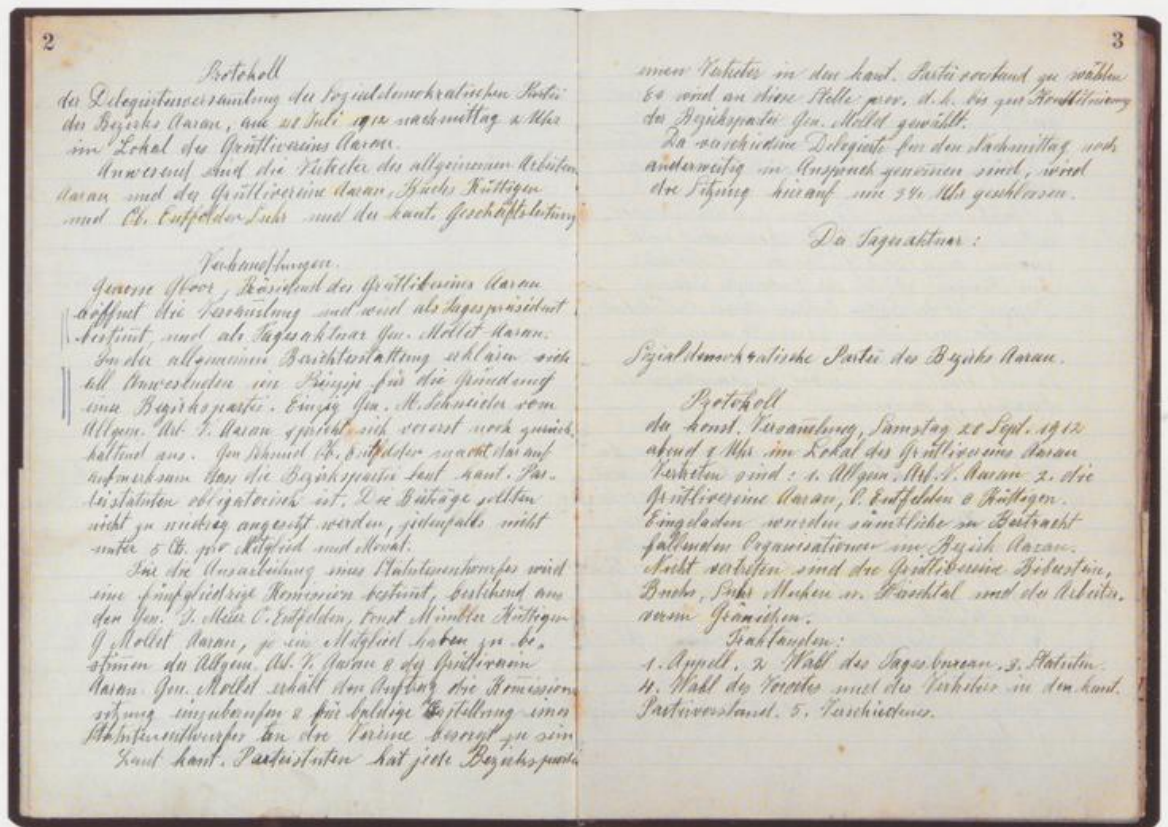 2
Protokoll
der Delegiertenversammlung der Sozialdemokratischen Partei
des Bezirks Aarau, am 28 Juli 1912 nachmittag 2 Uhr
im Lokal des Grütlivereins Aarau.
Anwesend sind die Vertreter des allgemeinen Arbeiterv.
Aarau und der Grütlivereine Aarau, Buchs Küttigen
und Ob. Entfelden Suhr und der kant. Geschäftsleitung
Verhandlungen.
Genosse Gloor, Präsident des Grütlivereins Aarau
eröffnet die Versamlung und wird als Tagespräsident
bestimt, und als Tagesaktuar Gen. Mollet Aarau.
In der allgemeinen Berichterstattung erklären sich
all Anwesenden im Prinzip für die Gründung
einer Bezirkspartei. Einzig Gen. M. Schneider vom
Allgem. Arb. V. Aarau spricht sich vorerst noch zurück-
haltend aus. Gen Schmid Ob. Entfelden macht darauf
aufmerksam dass die Bezirkspartei laut kant. Par-
teistatuten obligatorisch ist. Die Beiträge sollten
nicht zu niedrig angesetzt werden, jedenfalls nicht
unter 5 Ct. pro Mitglied und Monat.
Für die Ausarbeitung eines Statutenentwurfes wird
eine fünfgliedrige Komission bestimt, bestehend aus
den Gen. J. Meier O. Entfelden, Ernst Küttigen
G Mollet Aarau, je ein Mitglied haben zu be-
stimen der Allgem. Arb. V. Aarau & der Grütliverein
Aarau. Gen. Mollet erhält den Auftrag die Komissions
sitzung einzuberufen & für baldige Zustellung eines
Statutenentwurfes an die Vereine besorgt zu sein
Laut kant. Parteistatuten hat jede Bezirkspartei
3
einen Vertreter in den kant. Parteivorstand zu wählen
Es wird an diese Stelle prov. d. h. bis zur Konstituierung
der Bezirkspartei Gen. Mollet gewählt.
Da verschiedene Delegierte für den Nachmittag noch
anderweitig in Anspruch genomen sind, wird
die Sitzung hierauf um 3¾ Uhr geschlossen.
Der Tagesaktuar:
Sozialdemokratische Partei des Bezirks Aarau.
Protokoll
der konst. Versamlung, Samstag 28 Sept. 1912
abend 8 Uhr im Lokal des Grütlivereins Aarau
Vertreten sind: 1. Allgem. Arb. V. Aarau 2. die
Grütlivereine Aarau, O. Entfelden & Küttigen.
Eingeladen wurden sämtliche in Bertracht
fallenden Organisationen im Bezirk Aarau.
Nicht vertreten sind die Grütlivereine Biberstein,
Buchs, Suhr Muhen u. Hirschtal und der Arbeiter-
verein Gränichen.
Traktanden:
1. Appell. 2 Wahl des Tagesbureau. 3. Statuten.
4. Wahl des Vorortes und des Vertreters in den kant.
Parteivorstand. 5. Verschiedenes.